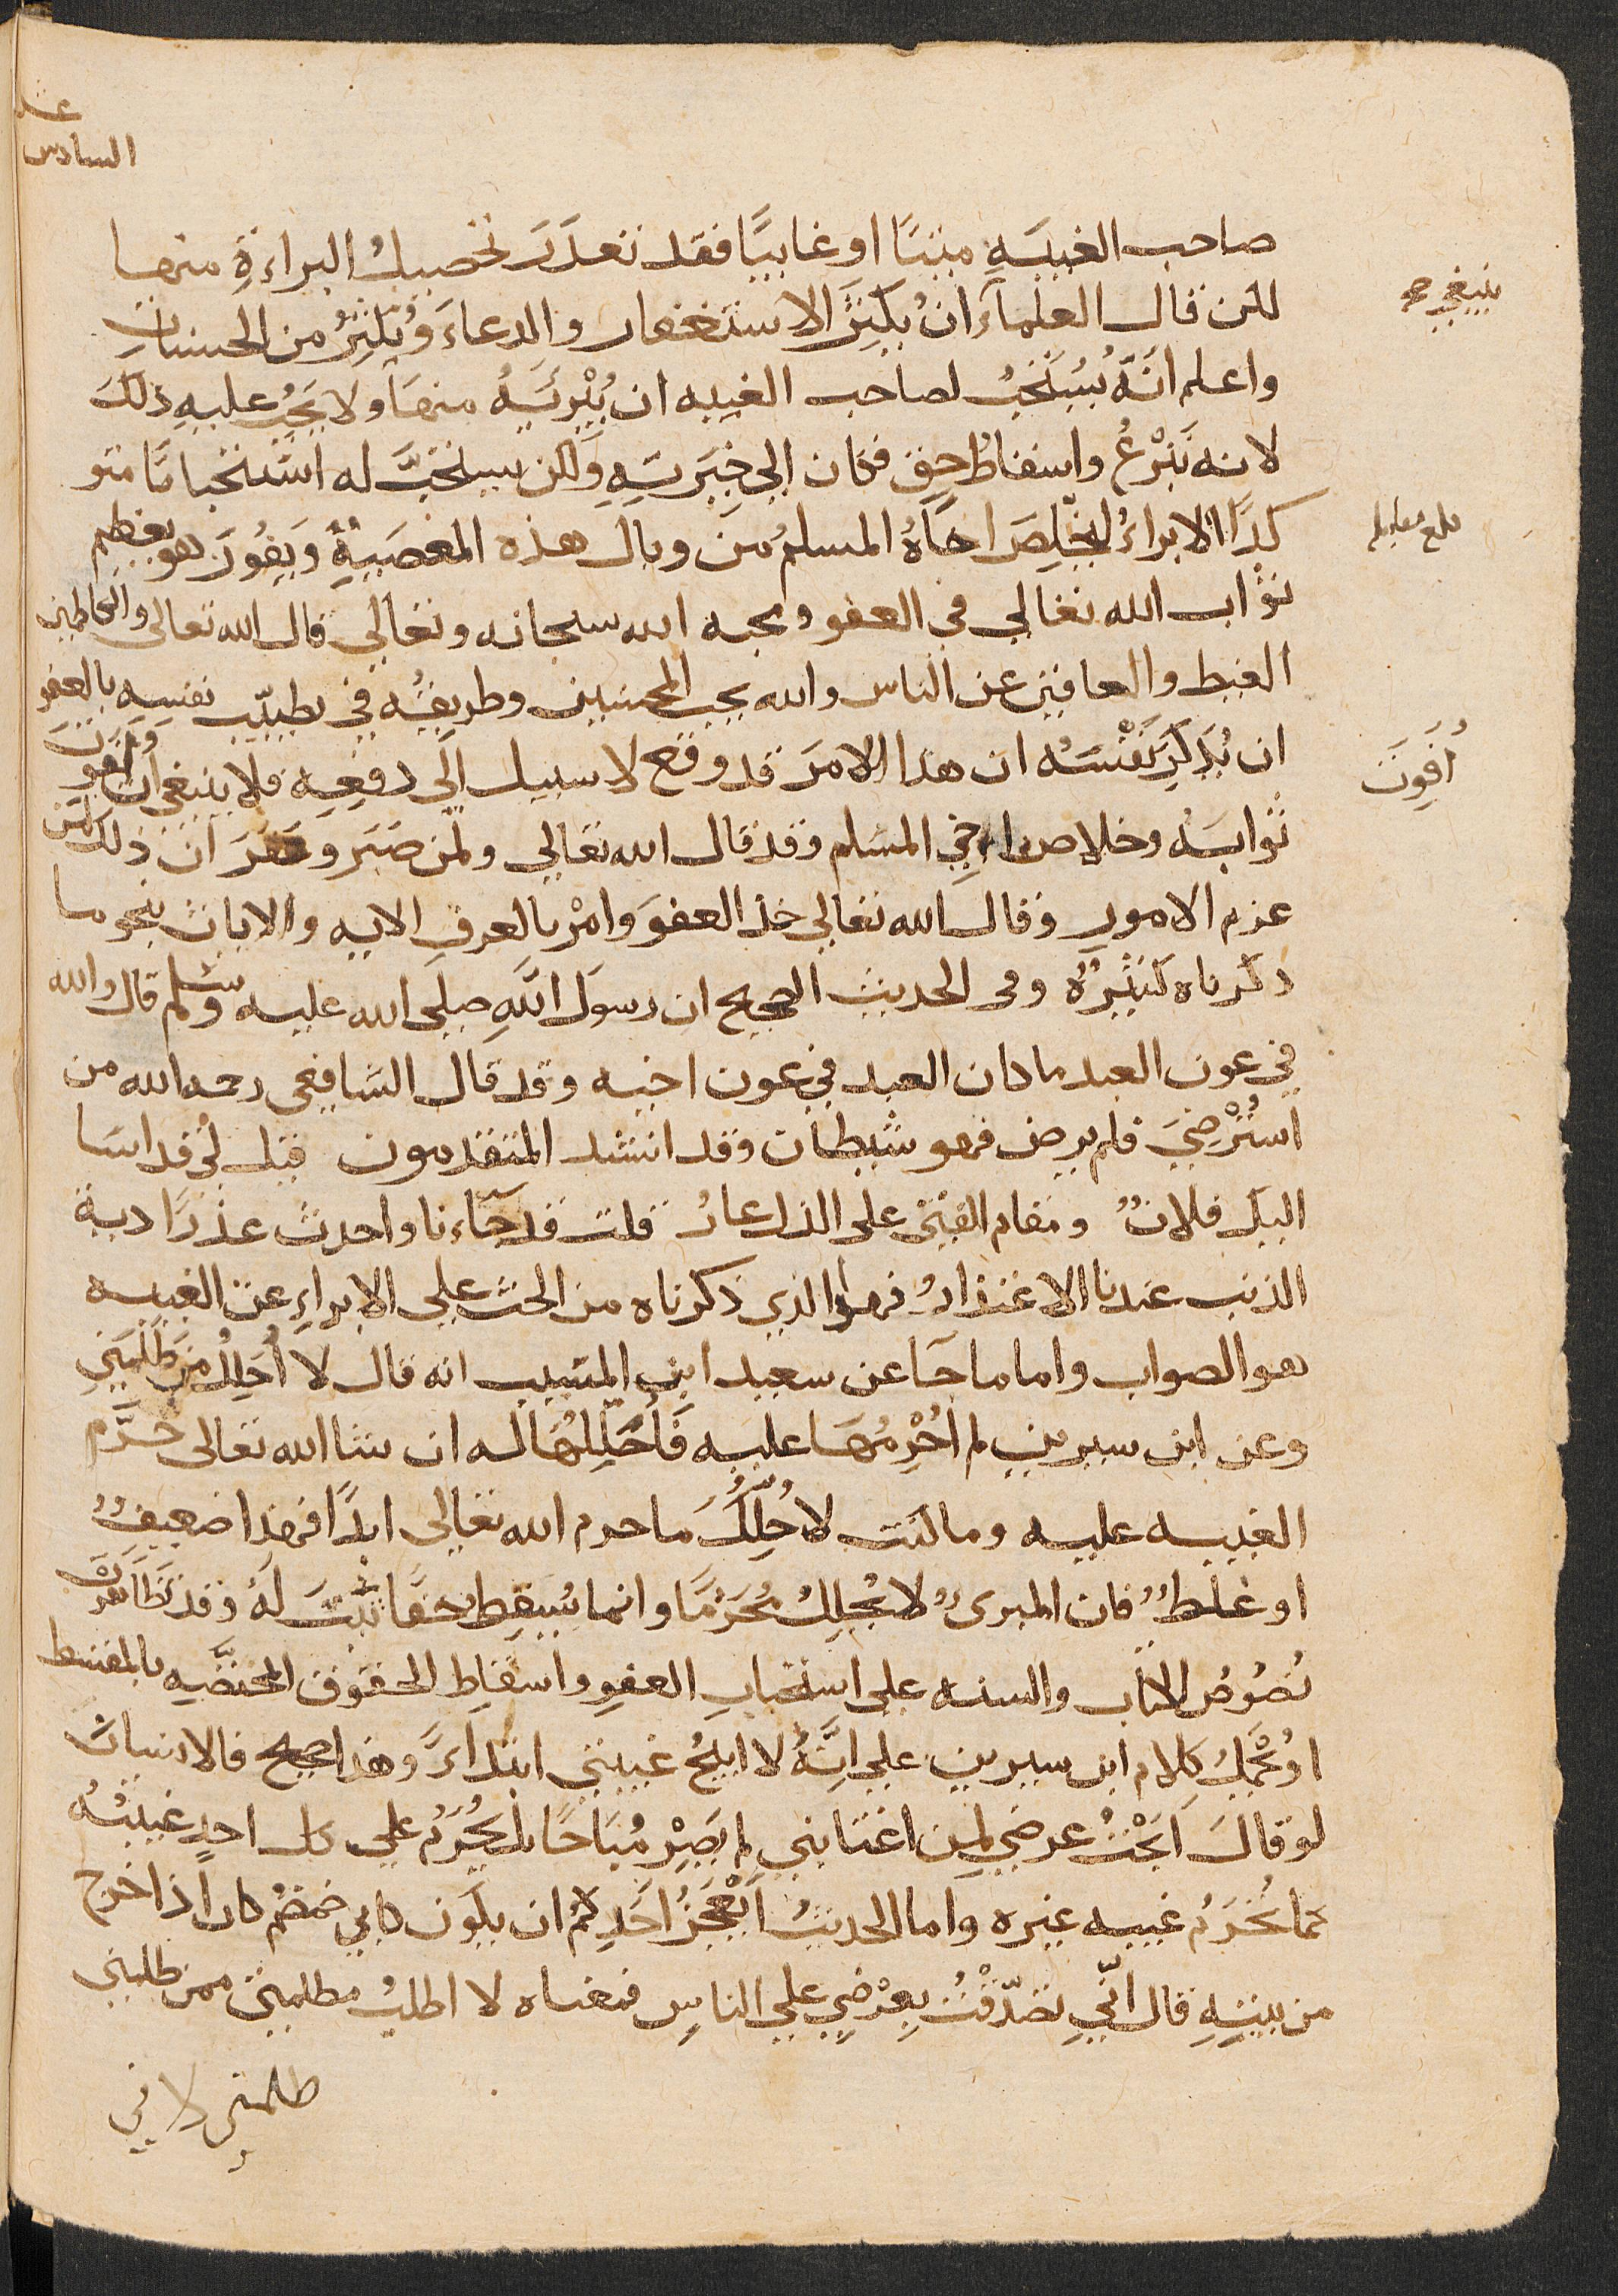 عشر
السادس
صاحب الغيبة ميتا او غايبًا فقد تعذر تحصيل البراءة منها
ينبغي صح
لكن قال العلماء ان يكثر الاستغفار والدعاء ويكثر من الحسنات
واعلم انه يستحب لصاحب الغيبه ان يبرئه منها ولا يجب عليه ذلك
لانه تبرع واسقاط حق فكان الى خيرته ولكن يستحب له استحبابا متو
كدا الابراء ليخلص اخاه المسلم من وبال هذه المعصية ويفوز هو بعظيم
بلغ مقابله
ثواب الله تعالي في العفو ومحبه الله سبحانه وتعالي قال الله تعالى والكاظمين
الغيظ والعافين عن الناس والله يحب المحسنين وطريقه في تطييب نفسه بالعفو
ان يذكر نفسه ان هذا الامر قد وقع لا سبيل الى رفعه فلا ينبغي ان افوت
أُفَوِتَ
ثوابه وخلاص اخي المسلم وقد قال الله تعالي ولمن صبر وغفر ان ذلك لمن
عزم الامور وقال الله تعالي خذ العفو وامر بالعرف الايه والايات بنحو ما
ذكرناه كثيرة وفي الحديث الصحيح ان رسول الله صلى الله عليه وسلم قال والله
في عون العبد ما كان العبد في عون اخيه وقد قال الشافعي رحمه الله من
استرضي فلم يرض فهو شيطان وقد انشد المتقدمون قيل لي قد اسا
اليك فلان ومقام الفتى على الذل عار قلت قد جاءنا واحدث عذرًا دية
الذنب عندنا الاعتذار فهذا الذي ذكرناه من الحث علي الابراء عن الغيبه
هو الصواب واما ما جا عن سعيد ابن المسيب انه قال لا أحلل من ظلمني
وعن ابن سيرين لم احرمها عليه فأحللها له ان شا الله تعالى حرّم
الغيبه عليه وما كنت لاحلل ما حرم الله تعالى ابدًا فهذا ضعيف
او غلط فان المبرئ لا يحلل محرمًا وانما يسقط حقا ثبت له وقد تظاهرت
نصوص الكتاب والسنه علي استحباب العفو واسقاط الحقوق المختصه بالمسقط
او يحمل كلام ابن سيرين علي انه لا ابيح غيبتي ابتداءً وهذا صحيح فالانسان
لو قال ابحت عرضي لمن اغتابني لم يصر مباحًا بل يحرم علي كل احد غيبته
كما تحرم غيبه غيره واما الحديث ايعجز احدكم ان يكون كابي ضمضم كان اذا خرج
من بيته قال اني تصدقت بعرضي علي الناس فمعناه لا اطلب مظلمتي ممن ظلمني
ظلمني لا في